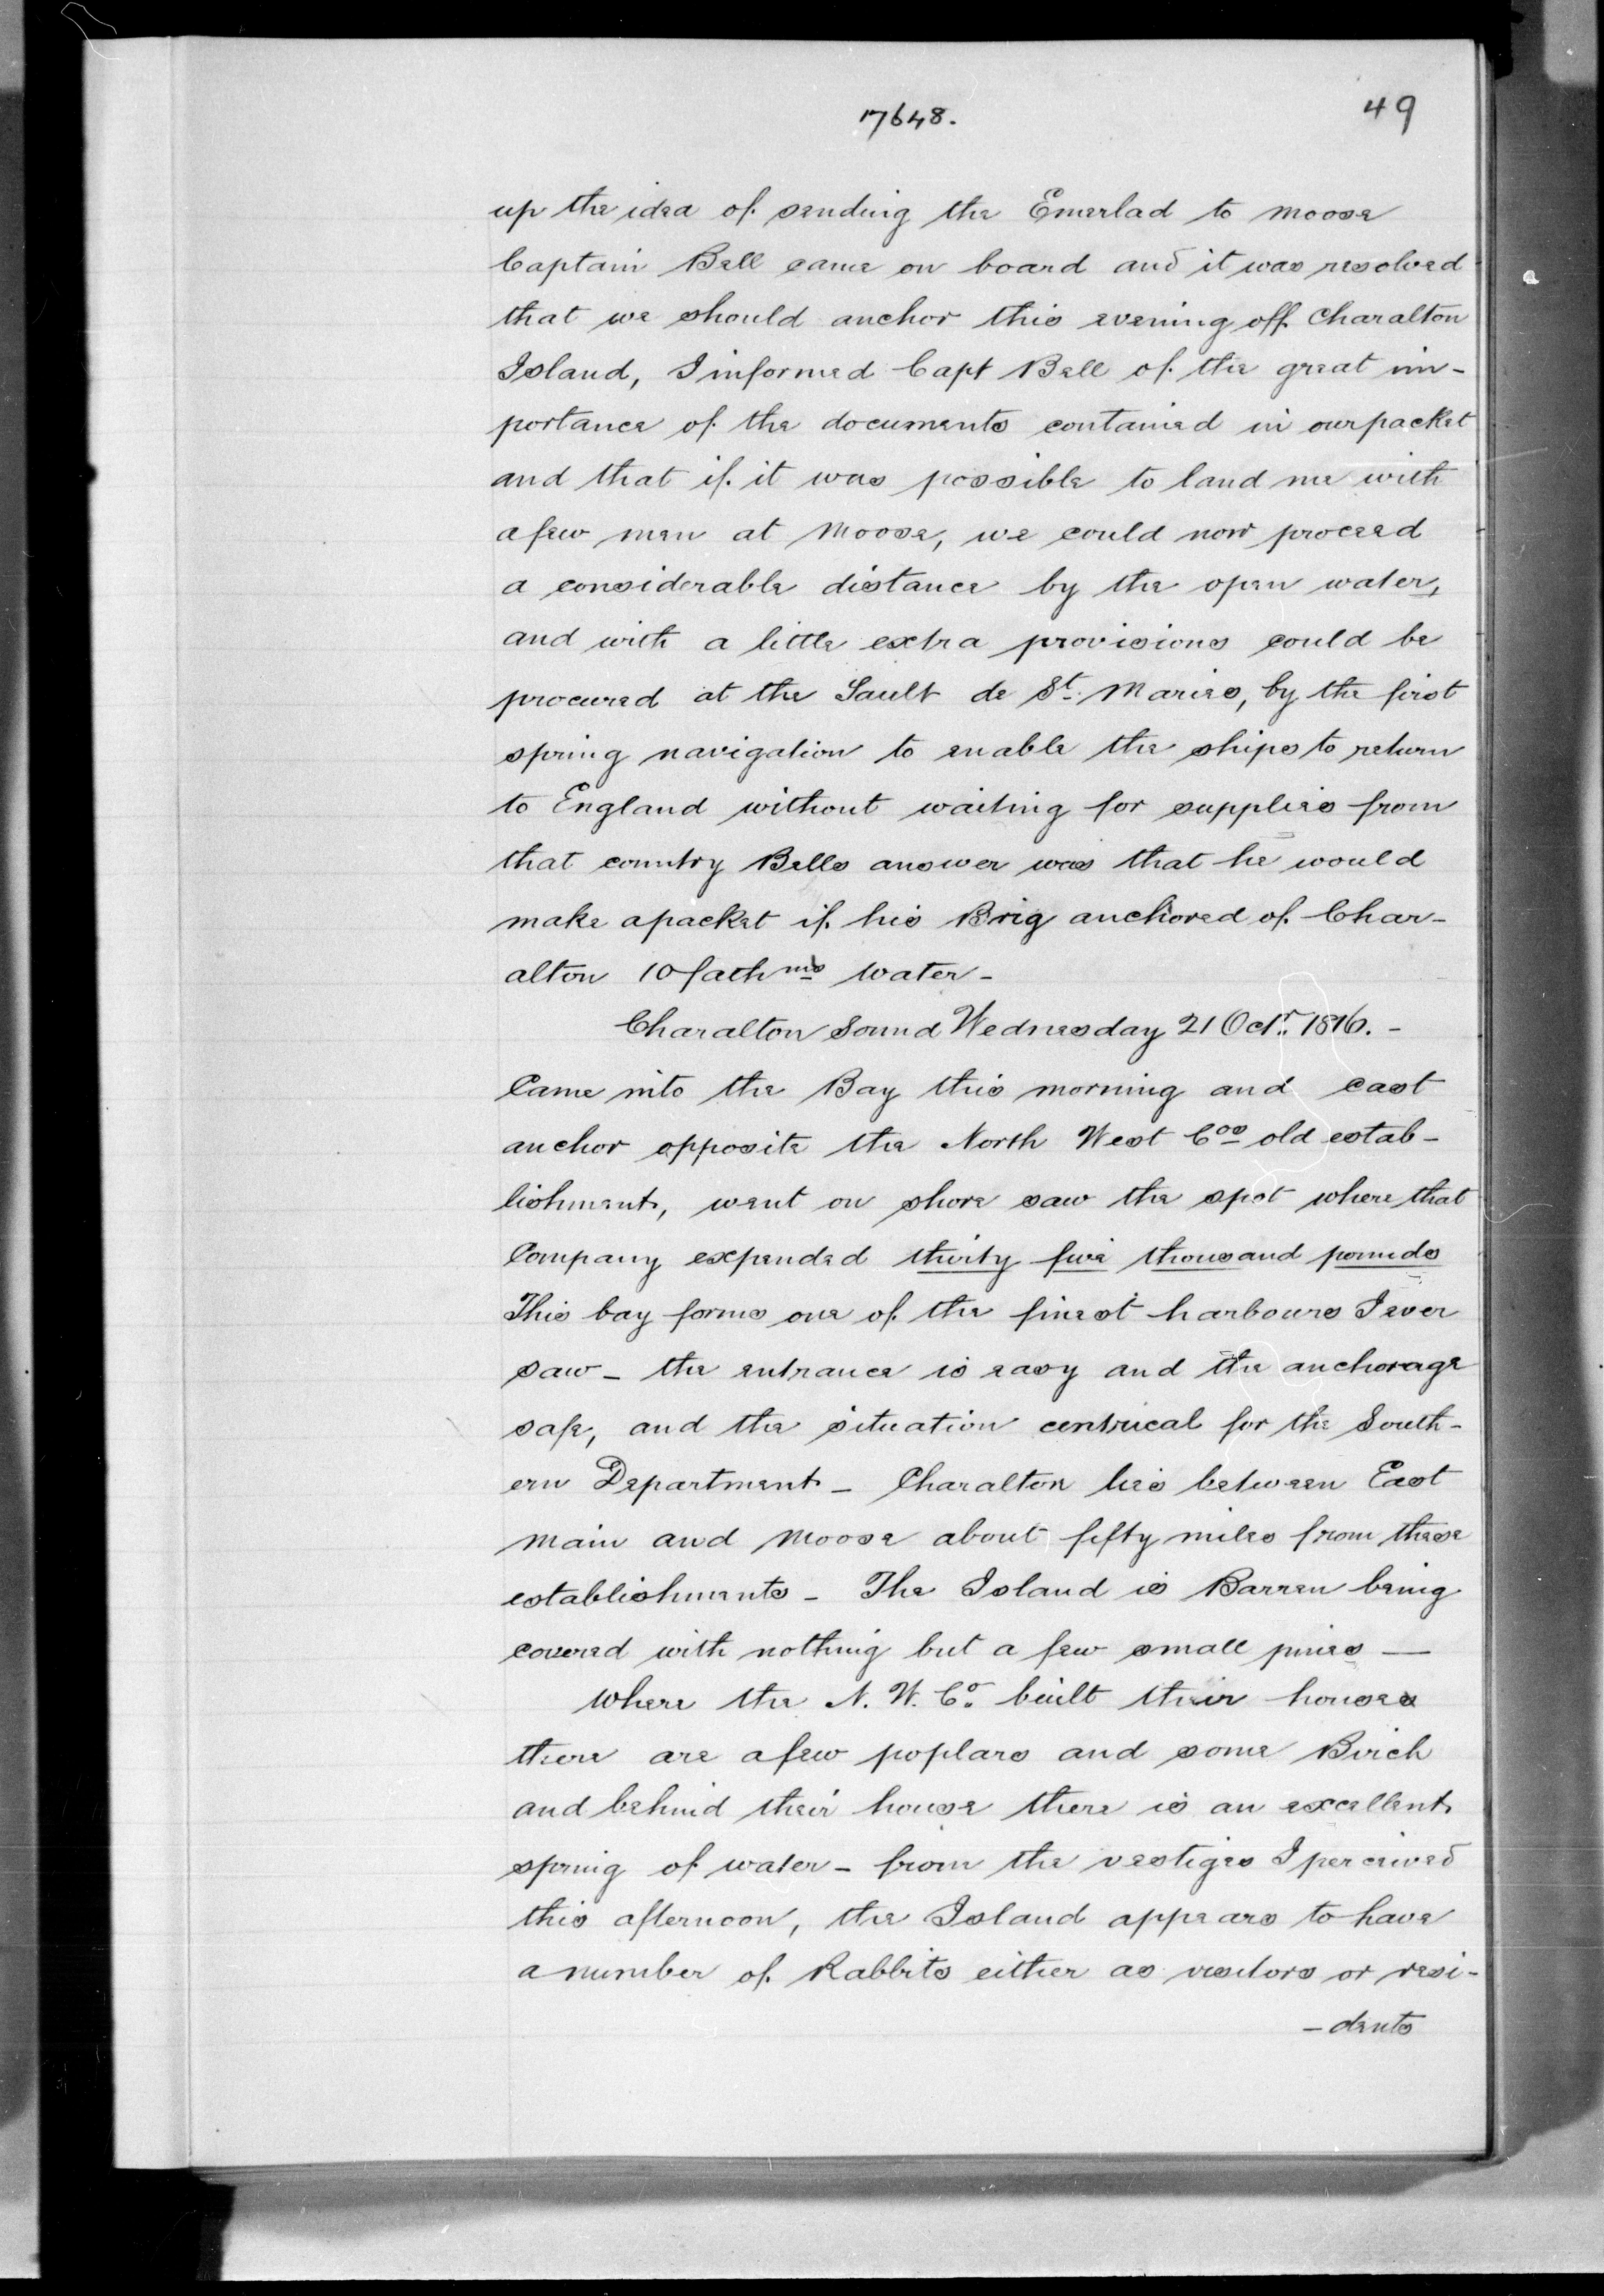 17648.
49
up the idea of sending the Emerlad to Moose
Captain Bell came on board and it was resolved
that we should anchor this evening off Charalton
Island, I informed Capt Bell of the great im-
portance of the documents contained in our packet
and that if it was possible to land me with
a few men at Moose, we could now proceed
a considerable distance by the open water,
and with a little extra provisions could be
procured at the Sault de St. Maries, by the first
spring navigation to enable the ships to return
to England without waiting for supplies from
that country Bells answer was that he would
make a packet if his Brig anchored of Char-
alton 10 fathms water -
Charalton Sound Wednesday 21 Octr. 1816. -
Came into the Bay this morning and cast
anchor opposite the North West Cos old estab-
lishment, went on shore saw the spot where that
Company expended thirty five thousand pounds
This bay forms one of the finest harbours I ever
saw - the entrance is easy and the anchorage
safe, and the situation centrical for the South-
ern Department - Charalton lies between East
main and Moose about fifty miles from these
establishments - The Island is Barren being
covered with nothing but a few small pines —
where the N. W. Co. built their houses
there are a few poplars and some Birch
and behind their house there is an excellent
spring of water - from the vestiges I perceived
this afternoon, the Island appears to have
a number of Rabbits either as visitors or resi-
- dents